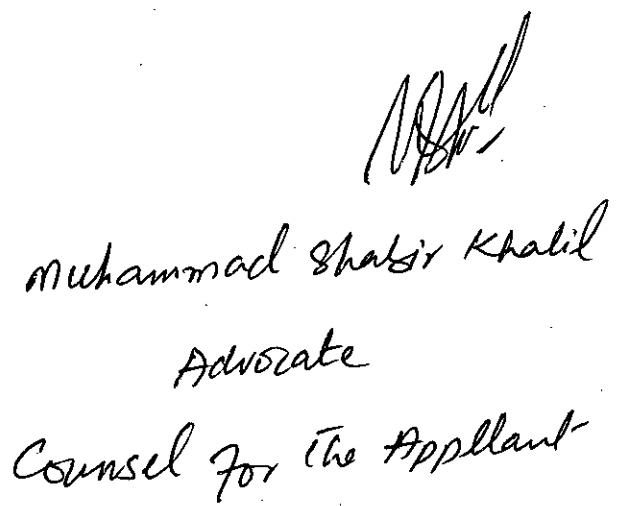 Muhammad Shabir Khalil
Advocate
Counsel for The Appllant